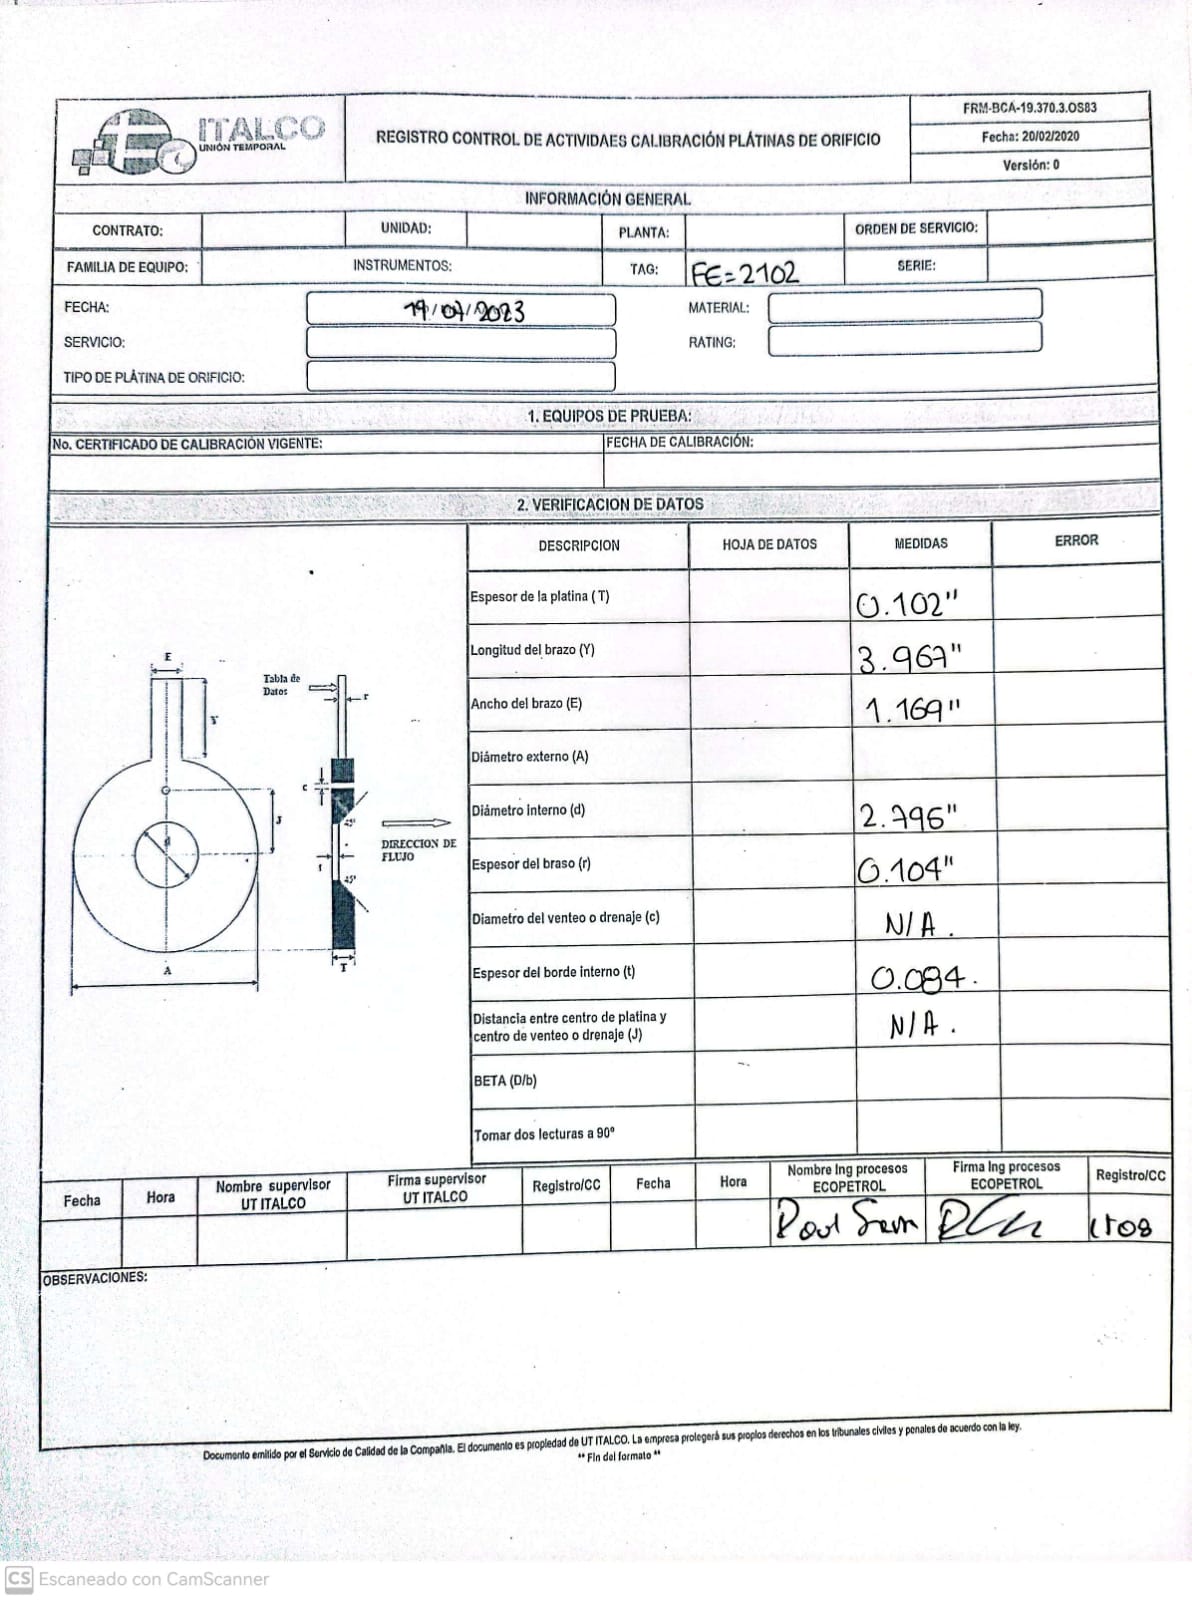 ITALCO
UNIÓN TEMPORAL
REGISTRO CONTROL DE ACTIVIDAES CALIBRACIÓN PLÁTINAS DE ORIFICIO
FRM-BCA-19.370.3.OS83
Fecha: 20/02/2020
Versión: 0
INFORMACIÓN GENERAL
CONTRATO: UNIDAD: PLANTA: ORDEN DE SERVICIO:
FAMILIA DE EQUIPO: INSTRUMENTOS: TAG: FE=2102 SERIE:
FECHA: 19/07/2023 MATERIAL:
SERVICIO: RATING:
TIPO DE PLÁTINA DE ORIFICIO:
1. EQUIPOS DE PRUEBA:
No. CERTIFICADO DE CALIBRACIÓN VIGENTE: FECHA DE CALIBRACIÓN:
2. VERIFICACION DE DATOS
DESCRIPCION HOJA DE DATOS MEDIDAS ERROR
Espesor de la platina (T) 0.102"
Longitud del brazo (Y) 3.967"
Ancho del brazo (E) 1.169"
Diámetro externo (A)
Diámetro interno (d) 2.796"
Espesor del braso (r) 0.104"
Diametro del venteo o drenaje (c) N/A.
Espesor del borde interno (t) 0.084.
Distancia entre centro de platina y
centro de venteo o drenaje (J) N/A.
BETA (D/b)
Tomar dos lecturas a 90º
E
Y
J
d
A
Tabla de
Datos
r
c
45º
t
45º
T
DIRECCION DE
FLUJO
Fecha Hora Nombre supervisor
UT ITALCO Firma supervisor
UT ITALCO Registro/CC Fecha Hora Nombre Ing procesos
ECOPETROL Firma Ing procesos
ECOPETROL Registro/CC
OBSERVACIONES:
Documento emitido por el Servicio de Calidad de la Compañía. El documento es propiedad de UT ITALCO. La empresa protegerá sus propios derechos en los tribunales civiles y penales de acuerdo con la ley.
** Fin del formato **
CS Escaneado con CamScanner